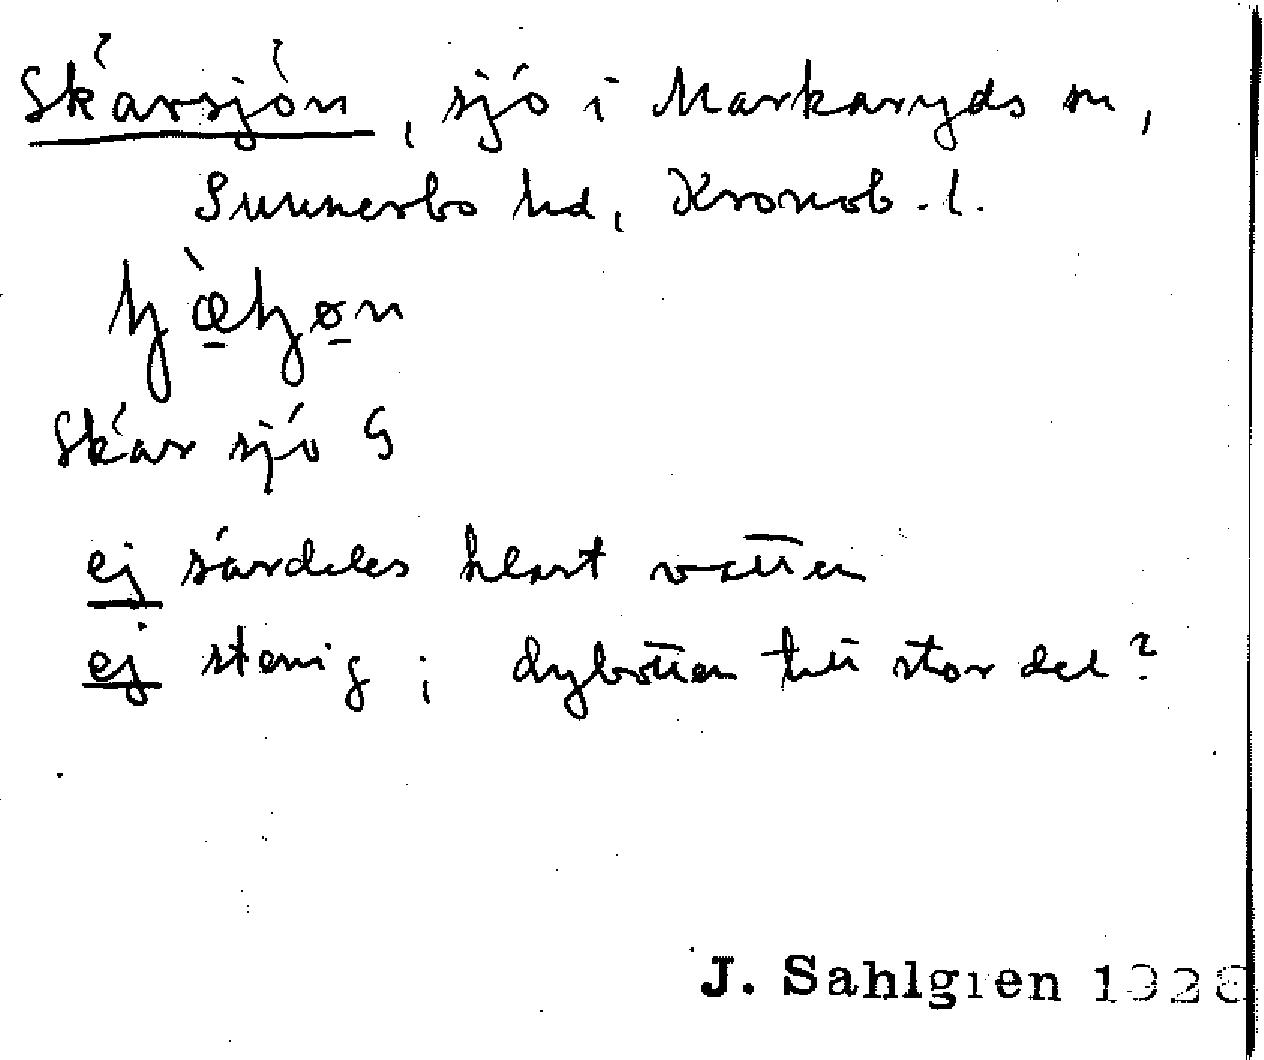 Skärsjön, sjö i Markaryds sn,
Sunnerbo hd, Kronob. l.
Skärsjö G
ej särdeles klart vatten
ej stenig; dybotten till stor del?
J. Sahlgren 1928